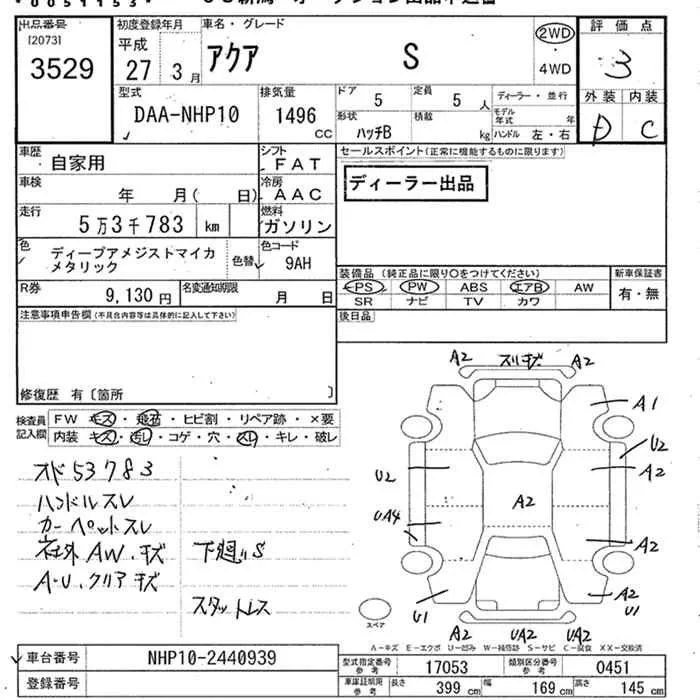 出品番号 [2073] 3529
初度登録年月 平成 27年 3月
車名・グレード アクア S
2WD 4WD
評価点 3
外装 D 内装 C
型式 DAA-NHP10
排気量 1496 CC
ドア 5 定員 5 人
形状 ハッチB 積載 kg
ディーラー・並行
モデル年式 年
ハンドル 左・右
車歴 自家用
シフト FAT
セールスポイント(正常に機能するものに限ります)
ディーラー出品
車検 年 月( 日)
冷房 AAC
走行 5万3千783 km
燃料 ガソリン
色 ディープアメジストマイカメタリック
色替
色コード 9AH
R券 9,130 円
名変通知期限 月 日
装備品(純正品に限り〇をつけてください)
PS PW ABS エアB AW
SR ナビ TV カワ
新車保証書 有・無
注意事項申告欄(不具合内容等は具体的に記入して下さい)
後日品
修復歴 有〔箇所 〕
検査員記入欄
FW キズ・飛石・ヒビ割・リペア跡・×要
内装 キズ・汚レ・コゲ・穴・スレ・キレ・破レ
スド53783
ハンドルスレ
カーペットスレ
社外AW.キズ 下廻りS
A-U.クリアキズ
スタットレス
A2 スリキズ A2
A1
U2
U2 A2
A2
UA4
A2
A2
U1 U1
A2 UA2 UA2
スペア
A-キズ E-エクボ U-凹み W-補修跡 S-サビ C-腐食 XX-交換済
車台番号 NHP10-2440939
登録番号
型式指定番号 参考 17053
類別区分番号 参考 0451
車庫証明用 参考 長さ 399 cm 幅 169 cm 高さ 145 cm